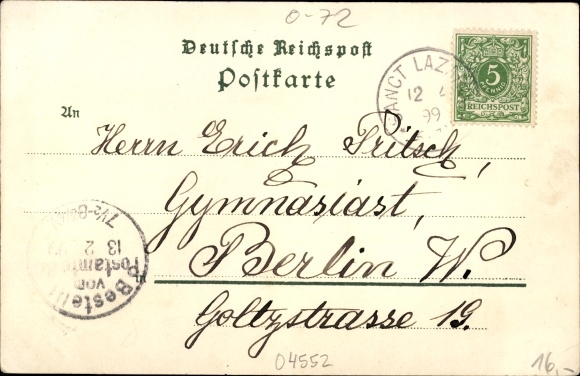 0-72
Deutsche Reichspost
Postkarte
SANCT LAZ
12 4
99
5
PFENNIG
REICHSPOST
An
Herrn Erich Fritsch,
Gymnasiast,
Berlin W.
Goltzstrasse 19.
Bestellt
vom
Postamte
13 2
7½-8
04552
16,-